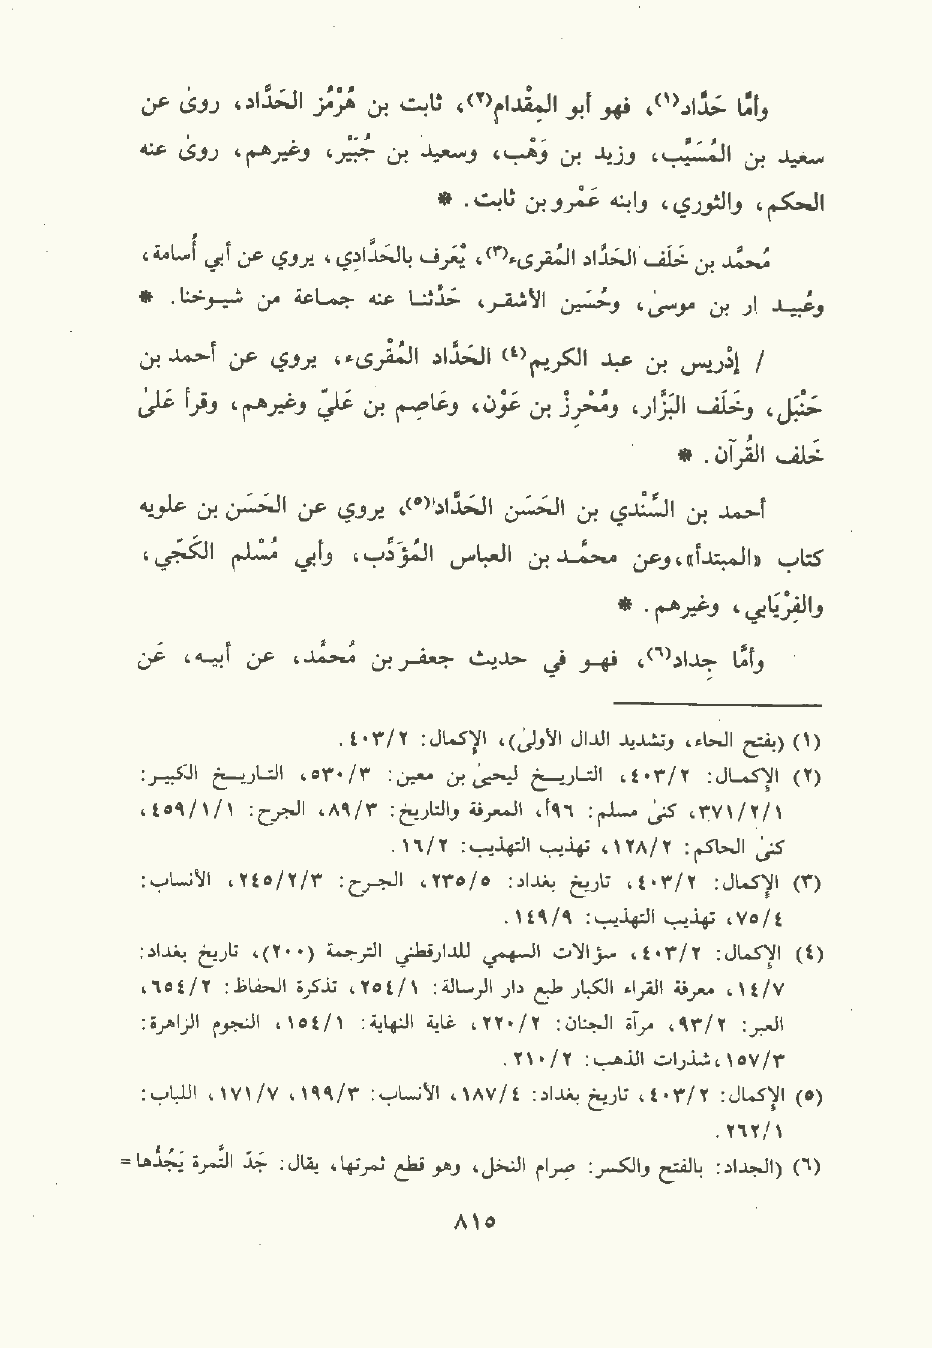 وأمَّا حَدَّاد(١)، فهو أبو المِقْدام(٢)، ثابت بن هُرْمُز الحَدَّاد، روىٰ عن
سعيد بن المُسَيَّب، وزيد بن وَهْب، وسعيد بن جُبَيْر، وغيرهم، روىٰ عنه
الحكم، والثوري، وابنه عَمْرو بن ثابت. *
مُحمَّد بن خَلَف الحَدَّاد المُقرىء(٣)، يُعْرَف بالحَدَّادي، يروي عن أبي أُسامة،
وعُبيد ار بن موسىٰ، وحُسَين الأشقر، حَدَّثنا عنه جماعة من شيوخنا. *
/ إدْريس بن عبد الكريم(٤) الحَدَّاد المُقْرىء، يروي عن أحمد بن
حَنْبَل، وخَلَف البَزَّار، ومُحْرِز بن عَوْن، وعَاصِم بن عَليّ وغيرهم، وقرأ علىٰ
خَلف القُرآن. *
أحمد بن السِّنْدي بن الحَسَن الحَدَّاد(٥)، يروي عن الحَسَن بن علويه
كتاب «المبتدأ»، وعن محمَّد بن العباس المُؤَدِّب، وأبي مُسْلم الكَجِّي،
والفِرْيَابي، وغيرهم. *
وأمَّا جِداد(٦)، فهو في حديث جعفر بن مُحمَّد، عن أبيه، عَن
(١) (بفتح الحاء، وتشديد الدال الأولىٰ)، الإكمال: ٢/‏٤٠٣.
(٢) الإكمال: ٢/‏٤٠٣، التاريخ ليحيىٰ بن معين: ٣/‏٥٣٠، التاريخ الكبير:
١/‏٢/‏٣٧١، كنىٰ مسلم: ٩٦أ، المعرفة والتاريخ: ٣/‏٨٩، الجرح: ١/‏١/‏٤٥٩،
كنىٰ الحاكم: ٢/‏١٢٨، تهذيب التهذيب: ٢/‏١٦.
(٣) الإكمال: ٢/‏٤٠٣، تاريخ بغداد: ٥/‏٢٣٥، الجرح: ٣/‏٢/‏٢٤٥، الأنساب:
٤/‏٧٥، تهذيب التهذيب: ٩/‏١٤٩.
(٤) الإكمال: ٢/‏٤٠٣، سؤالات السهمي للدارقطني ترجمة (٢٠٠)، تاريخ بغداد:
٧/‏١٤، معرفة القراء الكبار طبع دار الرسالة: ١/‏٢٥٤، تذكرة الحفاظ: ٢/‏٦٥٤،
العبر: ٢/‏٩٣، مرآة الجنان: ٢/‏٢٢٠، غاية النهاية: ١/‏١٥٤، النجوم الزاهرة:
٣/‏١٥٧، شذرات الذهب: ٢/‏٢١٠.
(٥) الإكمال: ٢/‏٤٠٣، تاريخ بغداد: ٤/‏١٨٧، الأنساب: ٣/‏١٩٩، ٧/‏١٧١، اللباب:
١/‏٢٦٢.
(٦) (الجداد: بالفتح والكسر: صِرام النخل، وهو قطع ثمرتها، يقال: جَدَّ الثَّمرة يَجُدُّها =
٨١٥